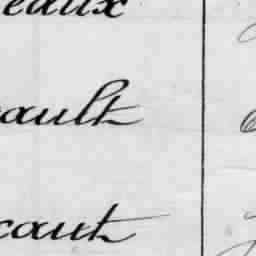 eaux
ault
caut